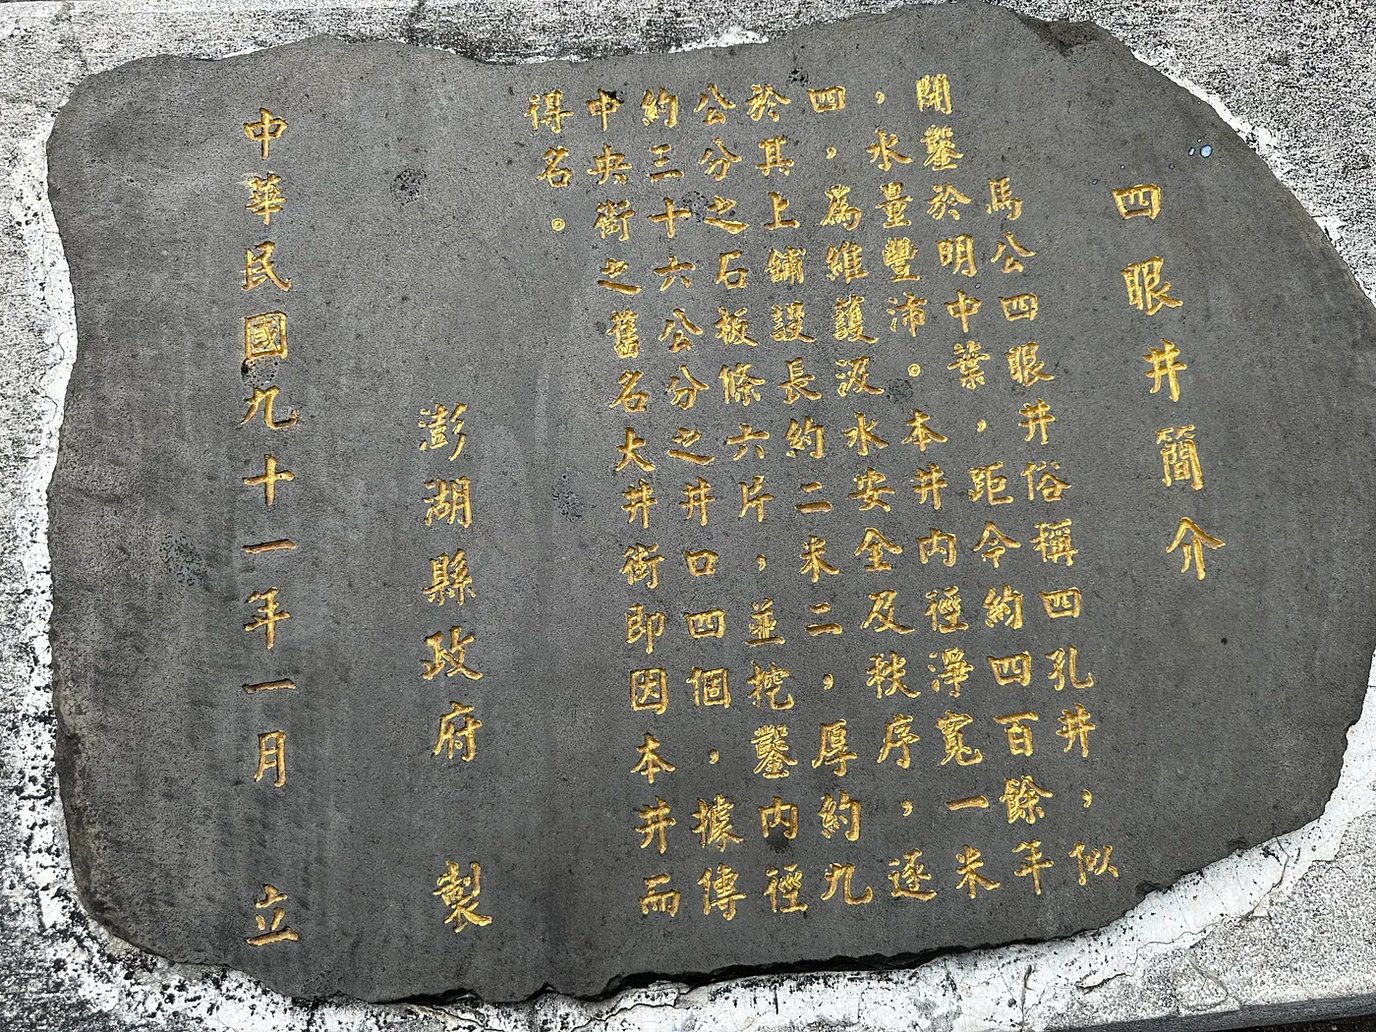 四眼井簡介
馬公四眼井俗稱四孔井，似
開鑿於明中葉，距今約四百餘年
，水量豐沛。本井內徑淨寬一米
四，為維護汲水安全及秩序，逐
於其上舖設長約二米二，厚約九
公分之石板條六片，並挖鑿內徑
約三十六公分之井口四個，據傳
中央街之舊名大井街即因本井而
得名。
澎湖縣政府 製
中華民國九十一年一月 立